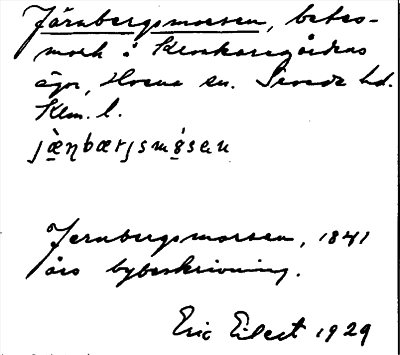 Järnbergsmossen, betes-
mark i Klockaregårdens
ägor, Hvena sn. Sevede hd.
Klm. l.
jæ̀ɳbærjsmɷ́sen
Jernbergsmossen, 1841
års bybeskrivning.
Eric Elert 1929